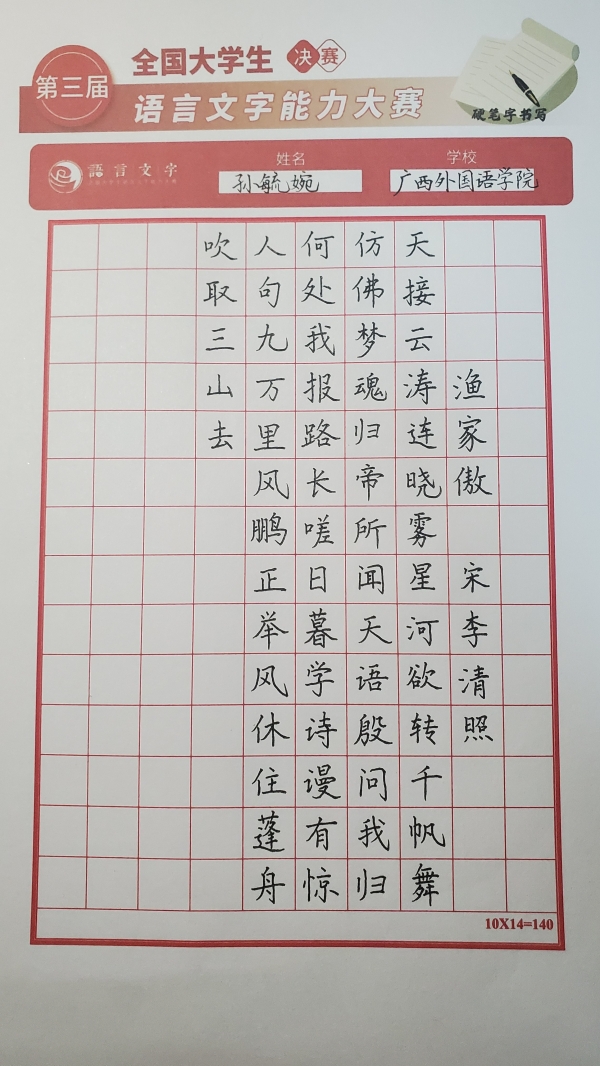 第三届
全国大学生 决赛
语言文字能力大赛
硬笔字书写
語言文字
姓名
孙毓婉
学校
广西外国语学院
渔家傲 宋 李清照
天接云涛连晓雾星河欲转千帆舞
仿佛梦魂归帝所闻天语殷问我归
何处我报路长嗟日暮学诗谩有惊
人句九万里风鹏正举风休住蓬舟
吹取三山去
10X14=140